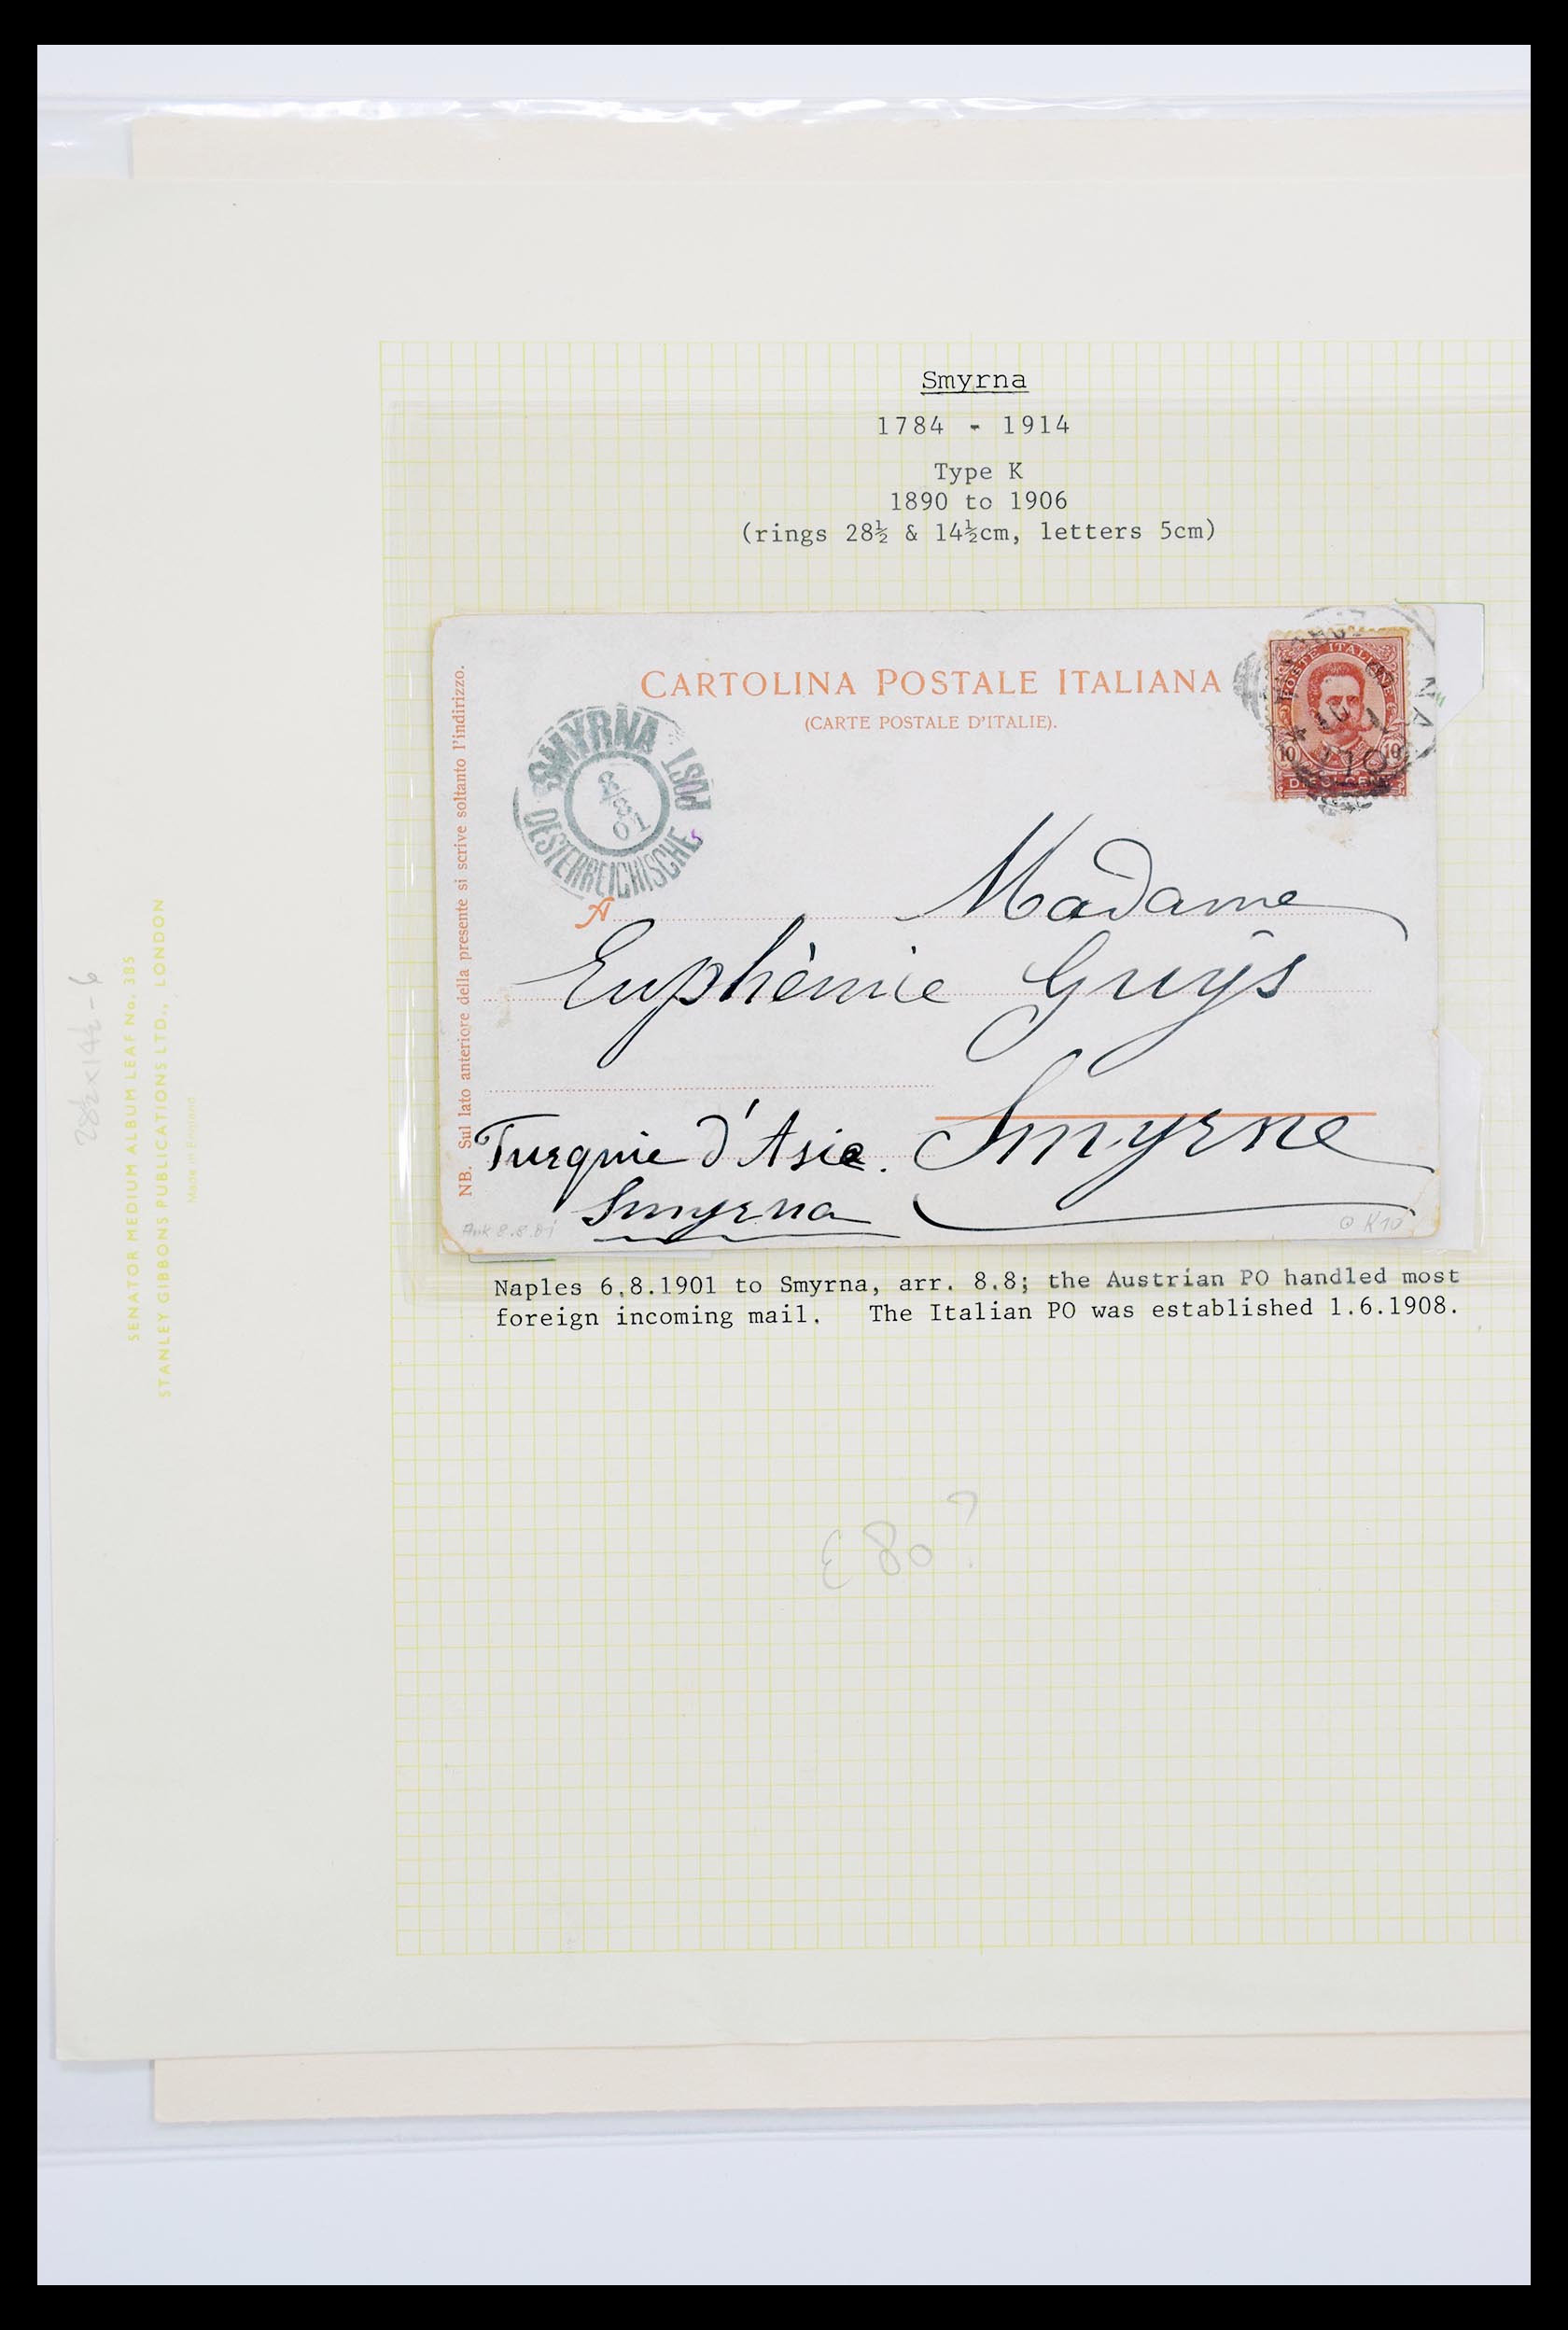 Smyrna
1784 - 1914
Type K
1890 to 1906
(rings 28½ & 14½cm, letters 5cm)
CARTOLINA POSTALE ITALIANA
(CARTE POSTALE D'ITALIE).
NB. Sul lato anteriore della presente si scrive soltanto l'indirizzo.
SMYRNA
OESTERREICHISCHE POST
8/8
01
POSTE ITALIANE
10 10
A Madame
Euphèmie Guys
Smyrne
Turquie d'Asie.
Smyrna
Naples 6.8.1901 to Smyrna, arr. 8.8; the Austrian PO handled most
foreign incoming mail. The Italian PO was established 1.6.1908.
£80?
28½x14½-6
SENATOR MEDIUM ALBUM LEAF No. 385
STANLEY GIBBONS PUBLICATIONS LTD., LONDON
Made in England